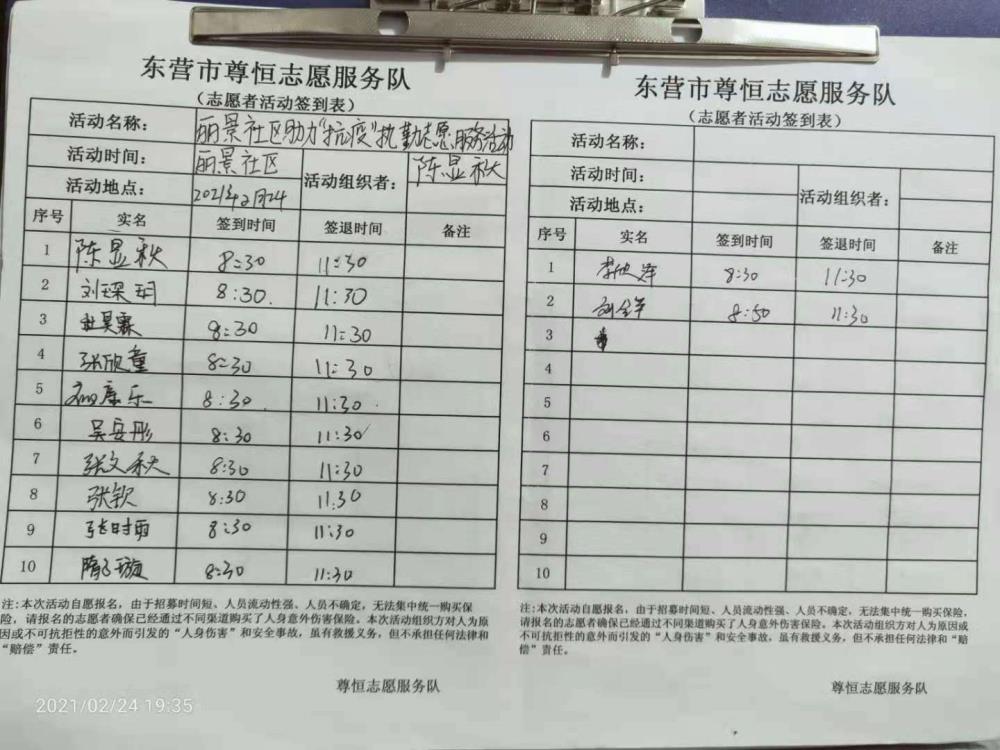 东营市尊恒志愿服务队
（志愿者活动签到表）
活动名称： 丽景社区助力"抗疫"执勤志愿服务活动
活动时间： 丽景社区 活动组织者： 陈显秋
活动地点： 2021年2月24
序号 实名 签到时间 签退时间 备注
1 陈显秋 8:30 11:30
2 刘琛玥 8:30. 11:30
3 杜昊霖 8:30 11:30
4 张欣童 8:30 11:30
5 康乐 8:30. 11:30.
6 吴安彤 8:30 11:30
7 张文秋 8:30 11:30
8 张钦 8:30 11:30
9 张时雨 8:30 11:30
10 隋子璇 8:30 11:30
注:本次活动自愿报名，由于招募时间短、人员流动性强、人员不确定，无法集中统一购买保
险，请报名的志愿者确保已经通过不同渠道购买了人身意外伤害保险。本次活动组织方对人为原
因或不可抗拒性的意外而引发的"人身伤害"和安全事故，虽有救援义务，但不承担任何法律和
"赔偿"责任。
尊恒志愿服务队
2021/02/24 19:35
东营市尊恒志愿服务队
（志愿者活动签到表）
活动名称：
活动时间： 活动组织者：
活动地点：
序号 实名 签到时间 签退时间 备注
1 李欣泽 8:30 11:30
2 8:50 11:30
3
4
5
6
7
8
9
10
注:本次活动自愿报名，由于招募时间短、人员流动性强、人员不确定，无法集中统一购买保险，
请报名的志愿者确保已经通过不同渠道购买了人身意外伤害保险。本次活动组织方对人为原因或
不可抗拒性的意外而引发的"人身伤害"和安全事故，虽有救援义务，但不承担任何法律和"赔
偿"责任。
尊恒志愿服务队